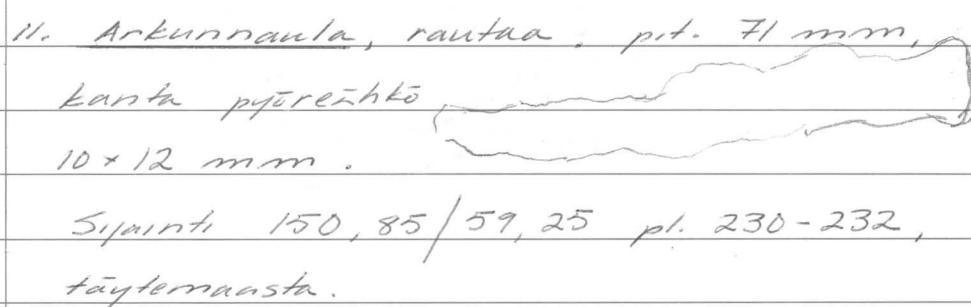 11. Arkunnaula, rautaa, pit. 71 mm,
kanta pyöreähkö
10 × 12 mm.
Sijainti 150,85/59,25 pl. 230-232,
täytemaasta.